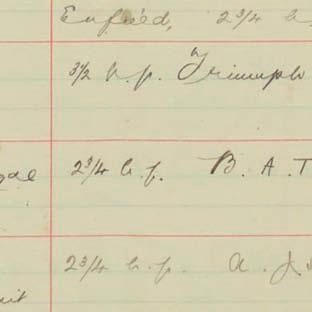 Enfield, 2 3/4 h
3 1/2 h.p. Triumph
2 3/4 h.p. B.A.T
2 3/4 h.p. A.J